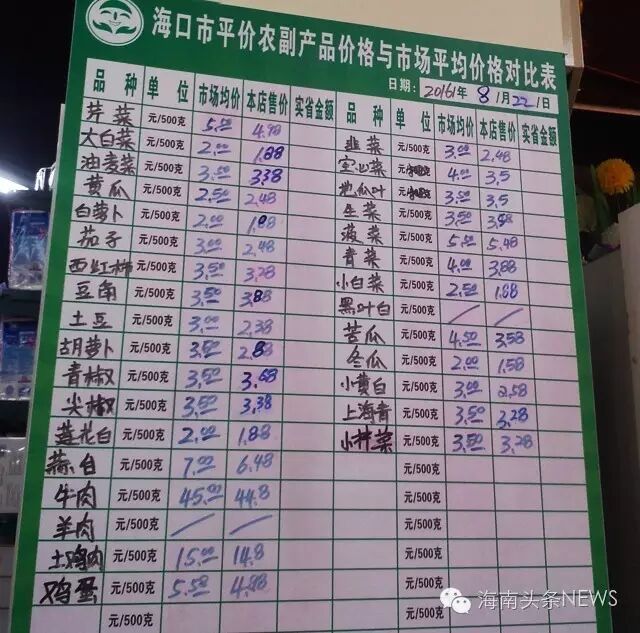 海口市平价农副产品价格与市场平均价格对比表
日期：2016年8月22日
品种 单位 市场均价 本店售价 实省金额 品种 单位 市场均价 本店售价 实省金额
芹菜 元/500克 5.00 4.98 韭菜 元/500克 3.00 2.48
大白菜 元/500克 2.00 1.88 空心菜 4.00 3.5
油麦菜 元/500克 3.50 3.38 地瓜叶 3.50 3.5
黄瓜 元/500克 2.50 2.48 生菜 元/500克 3.50
白萝卜 元/500克 2.00 菠菜 元/500克 5.50 5.48
茄子 元/500克 3.00 2.48 青菜 元/500克 4.00 3.88
西红柿 元/500克 3.50 3.28 小白菜 元/500克 2.50 1.88
豆角 元/500克 3.50 黑叶白 元/500克 / /
土豆 元/500克 3.00 2.38 苦瓜 元/500克 4.50 3.58
胡萝卜 元/500克 3.50 2.88 冬瓜 元/500克 2.00 1.58
青椒 元/500克 3.50 3.68 小黄白 元/500克 3.00 2.58
尖椒 元/500克 3.50 3.38 上海青 元/500克 3.50 3.28
莲花白 元/500克 2.00 1.88 元/500克 3.50 3.28
蒜白 元/500克 7.00 6.48 元/500克
牛肉 元/500克 45.00 44.8 元/500克
羊肉 元/500克 / / 元/500克
土鸡肉 元/500克 15.00 14.8 元/500克
鸡蛋 元/500克 5.50 4.88 元/500克
元/500克 元/500克
海南头条NEWS